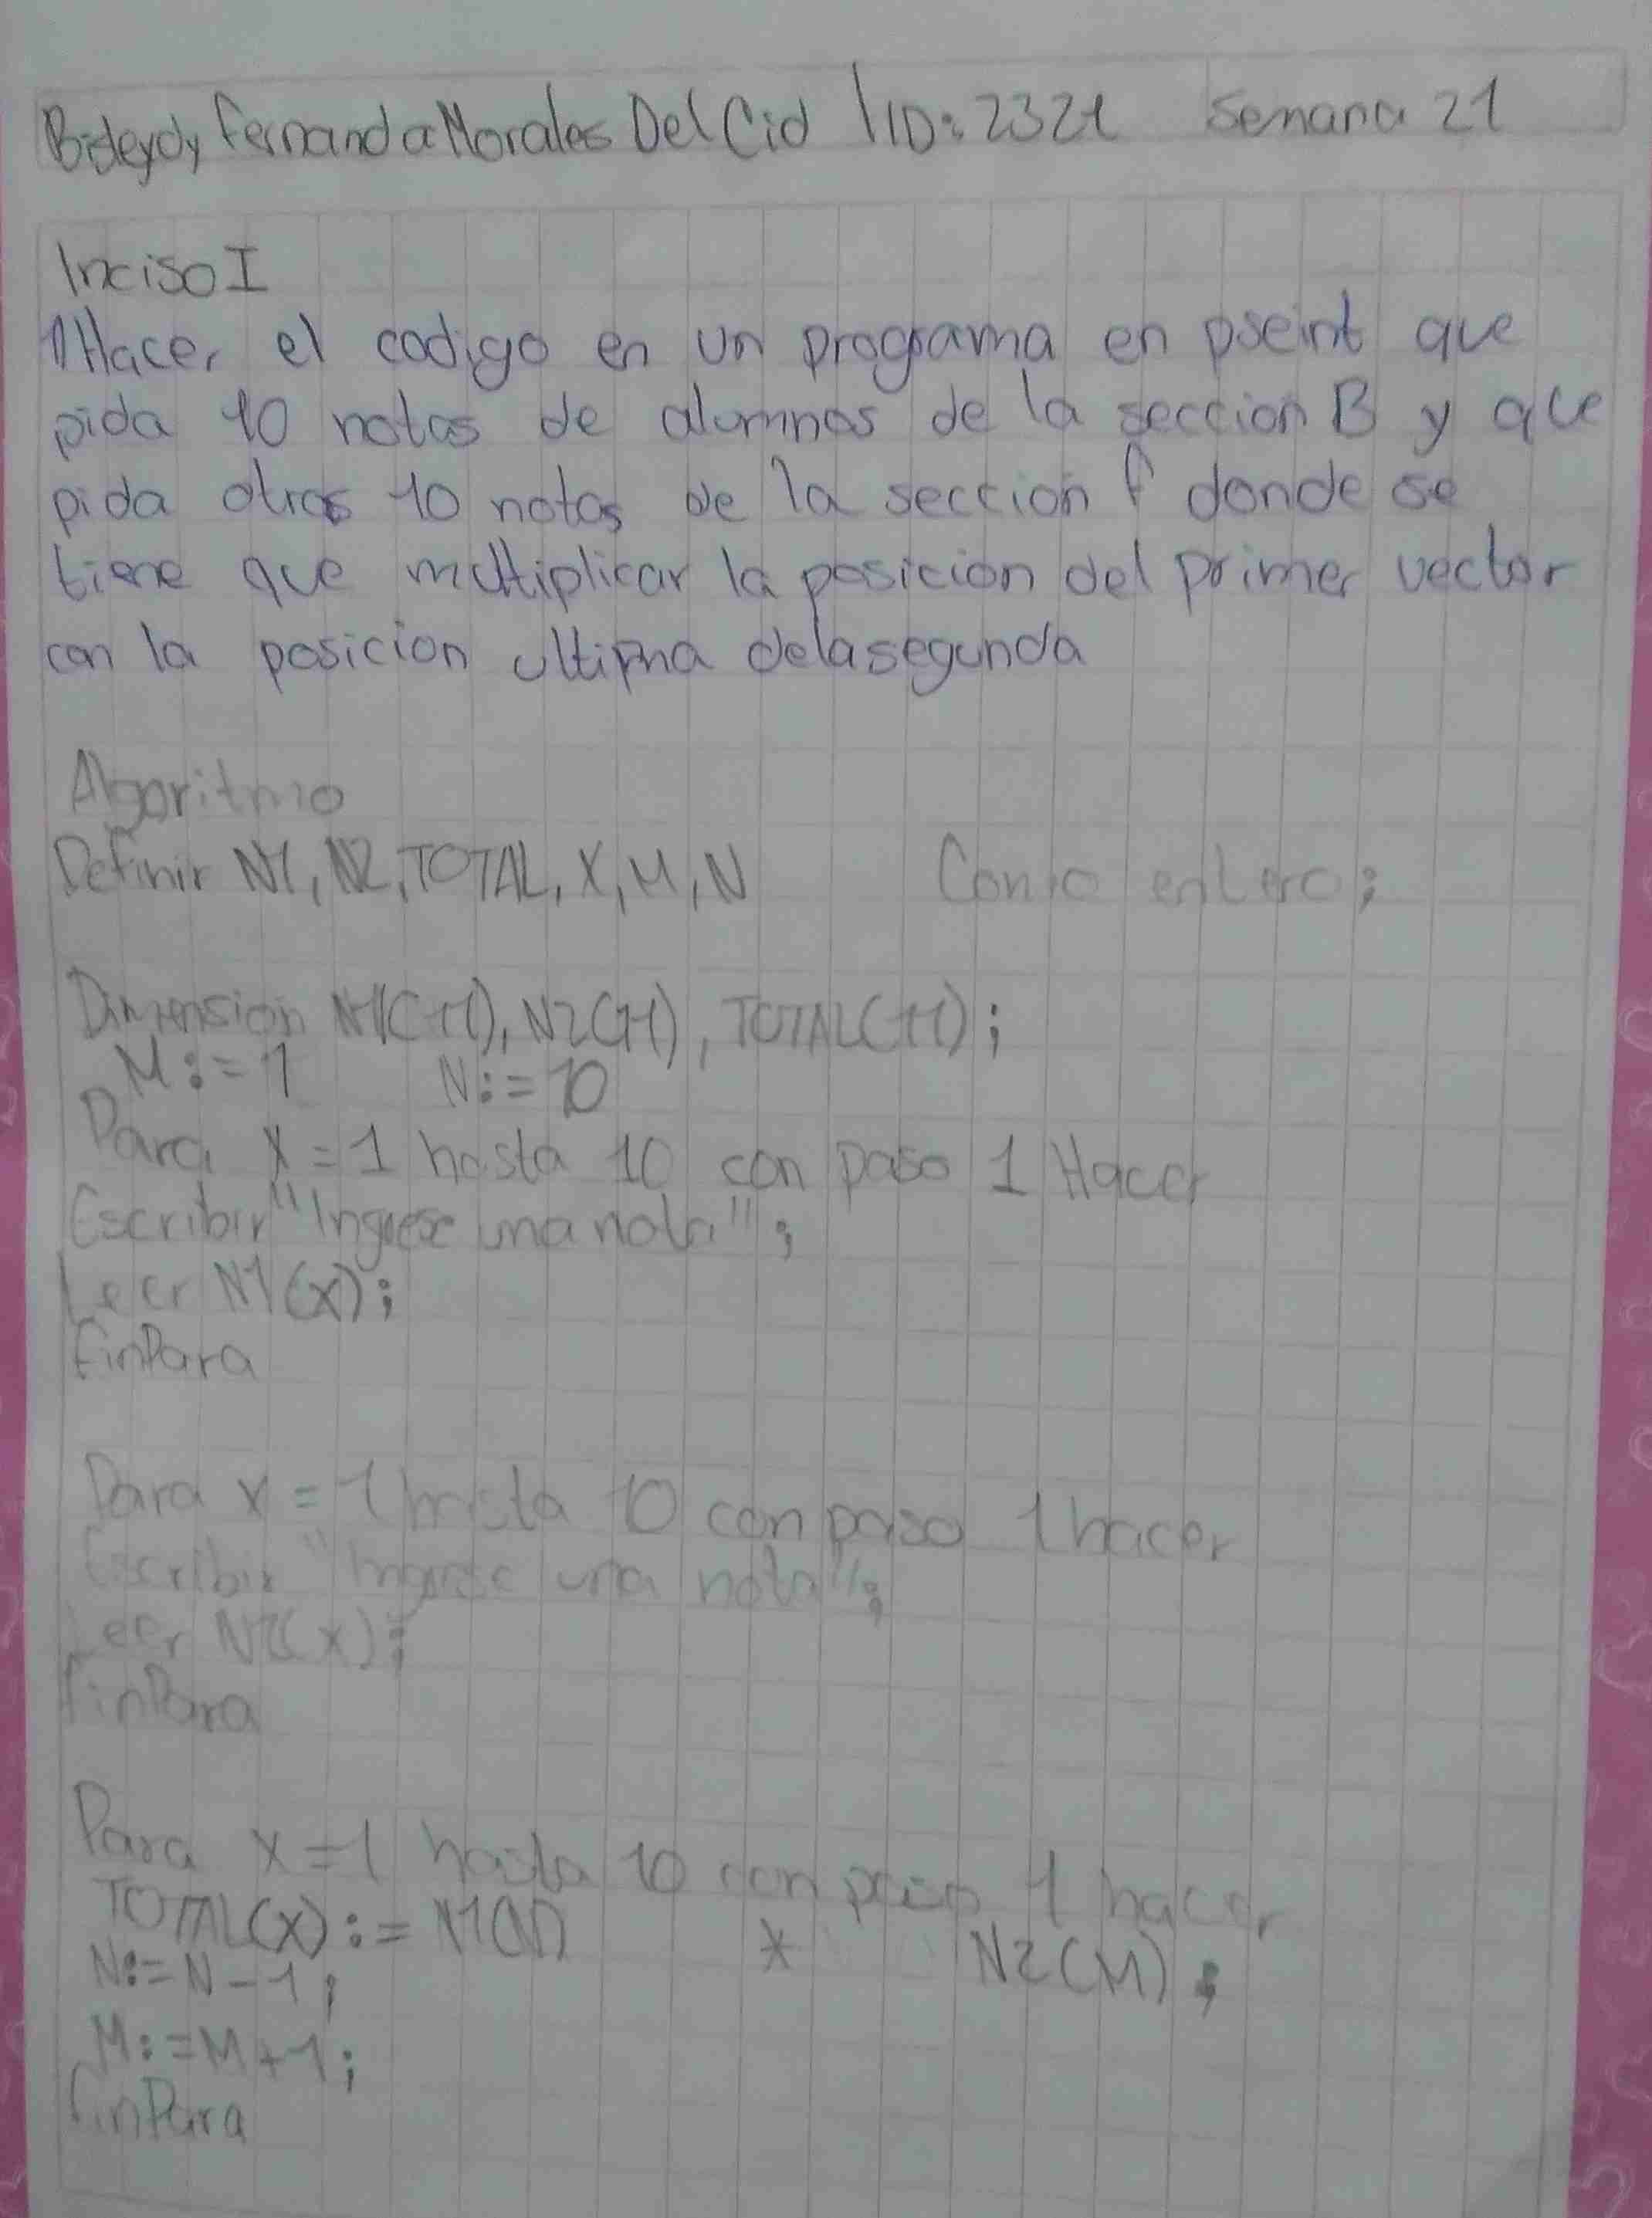 Bideydy Fernanda Morales Del Cid | ID: 2321 Semana 21
Inciso I
1) Hacer el codigo en un programa en pseint que
pida 10 notas de alumnos de la seccion B y que
pida otras 10 notas de la sección f donde se
tiene que multiplicar la posición del primer vector
con la posición ultima delasegunda
Algoritmo
Definir N1, N2, TOTAL, X, M, N Como entero;
Dimension N1(11), N2(11), TOTAL(11);
M:=1 N:=10
Para X=1 hasta 10 con paso 1 Hacer
Escribir "Ingrese una nota";
Leer N1(x);
finPara
Para x=1 hasta 10 con paso 1 hacer
Escribir "Ingrese una nota";
Leer N2(x);
finPara
Para x=1 hasta 10 con paso 1 hacer
TOTAL(x):= N1(N) * N2(M);
N:=N-1;
M:=M+1;
finPara